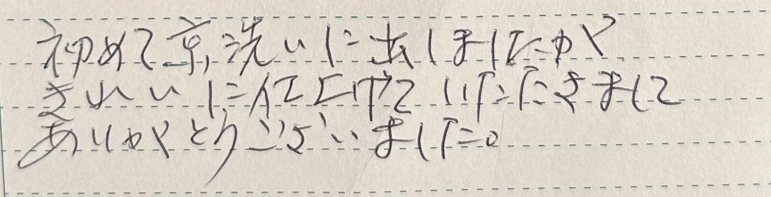 初めて京洗いに出しましたが
きれいに仕上げていただきまして
ありがとうございました。